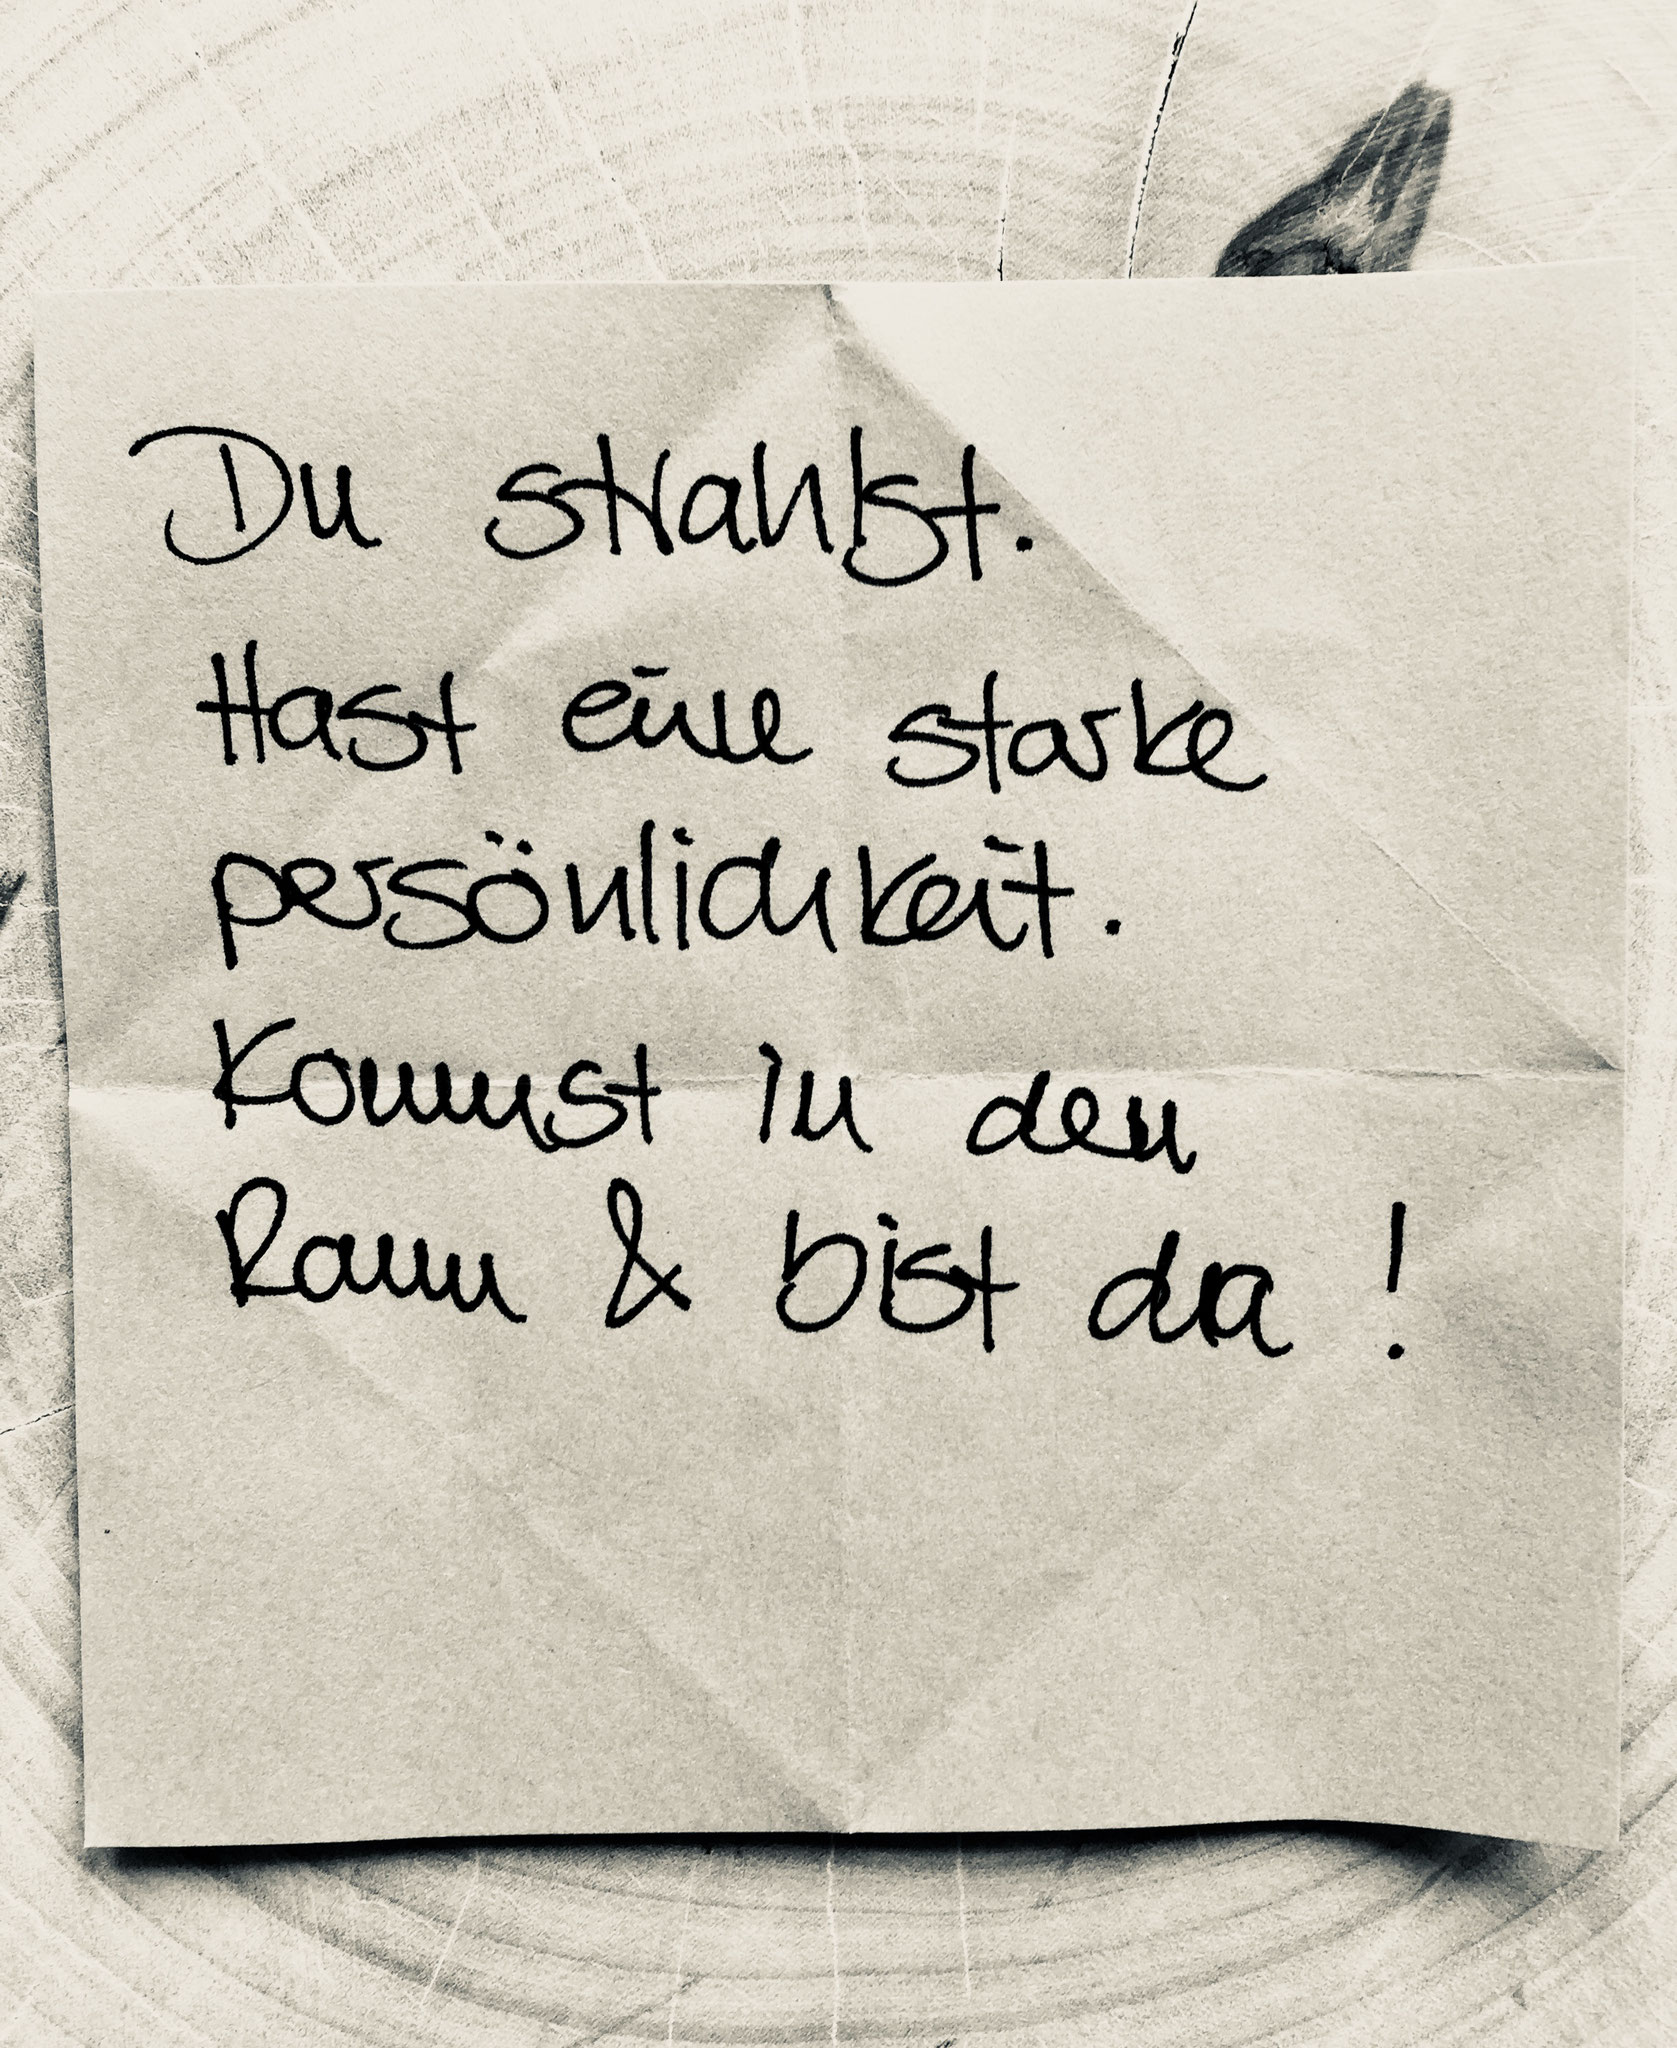 Du strahlst.
Hast eine starke
persönlichkeit.
Kommst in den
Raum & bist da !